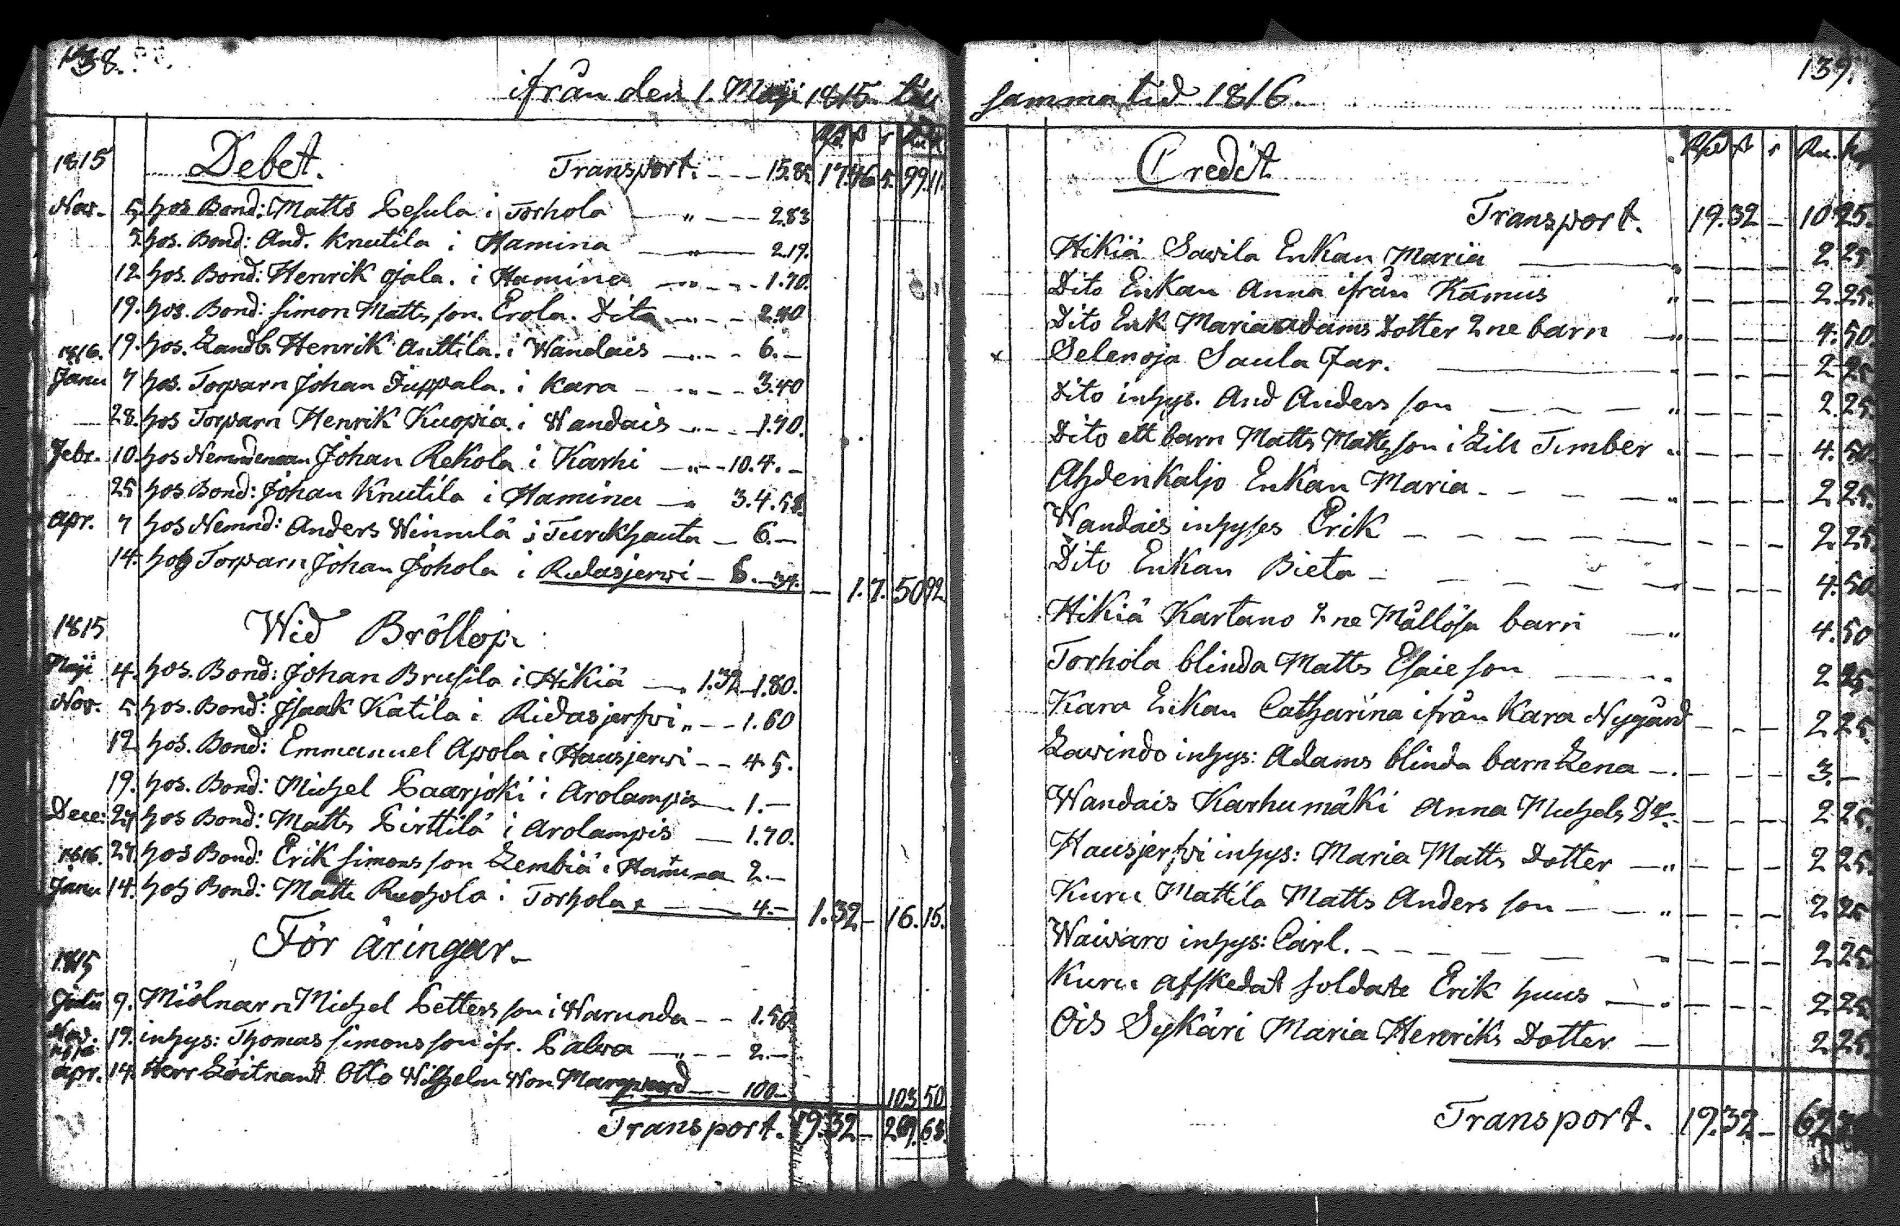 138.
ifrån den 1. Maji 1815 till
1815 Debet. Transport. 15.85 17.46 5. 99.11.
Nov. 5. hos Bond: Matts Pesula i Torhola „ 2.83
5. hos. Bond: And. Knutila i Hamina „ 2.19.
12 hos. Bond: Henrik Ojala. i Hamina „ 1.70.
19. hos. Bond: Simon Mattsson. Erola. Dito 2.40
19. hos. Landb. Henrik Anttila. i Wandais 6.–
1816.
Janu 7 hos. Torparn Johan Juppala. i Kara 3.40
28. hos Torparn Henrik Kuopia. i Wandais 1.70.
Febr. 10. hos Nemndeman Johan Rekola i Karhi 10.4.–
25 hos Bond: Johan Knutila i Hamina 3.4.58.
Apr. 7 hos Nemnd: Anders Winnilä i Turckhauta 6.–
14. hos Torparn Johan Johola i Ridasjerwi 6. 34. – 1.7. 50 92
1815 Wid Bröllop
Maji 4. hos. Bond: Johan Brusila i Hikiä 1.32 1.80.
Nov. 5. hos. Bond: Isaak Katila i Ridasjerfvi „ 1.60
12 hos. Bond: Emmanuel Apola i Hausjerwi 4.5.
19. hos. Bond: Michel Paarjoki i Arolampis 1.–
Dece: 27 hos Bond: Matts Pirttilä i Arolampis 1.70.
27. hos Bond: Erik Simonsson Lembiä i Hamina 2.–
1816.
Janu 14. hos Bond: Matts Ruohola i Torhola 4.– 1.32 – 16.15.
För äringar.
1815
Julii 9. Miölnarn Michel Pettersson i Warunda 1.50
Nov. 19. inhys: Thomas Simonsson ifr. Palwa „ 2.–
1816
Apr. 14. Herr Löitnant Otto Wilhelm Von 100 103 50
Transport. 19.32 – 269.68.
139.
samma tid 1816.
Credit
Transport. 19.32 – 10 25.
Hikiä Sawila Enkan Maria „ 2 25
Dito Enkan Anna ifrån Kamus „ 2 25.
Dito Enk Maria Adams Dotter 2ne barn „ 4.50
Selenoja Saula Far. „ 2 25
Dito inhys. And Andersson „ 2 25
Dito ett barn Matts Mattsson i Timber „ 4.50.
Ahdenkaljo Enkan Maria. „ 2 25.
Wandais inhyses Erik 2 25
Dito Enkan Bieta 4.50
Hikiä Kartano 2ne Mållösa barn „ 4.50
Torhola blinda Matts Esaieson 2 25.
Kara Enkan Catharina ifrån Kara Nygård 2 25.
Lawindo inhys: Adams blinda barn Lena 3.–
Wandais Karhumäki Anna Michels Dr. 2 25.
Hausjerfvi inhys: Maria Matts Dotter „ 2 25.
Kuru Mattila Matts Andersson „ 2 25
Waiwaro inhys: Carl. „ 2 25.
Kuru affskedat soldate Erik huus 2 25.
Ois Sykäri Maria Henriks Dotter 2 25.
Transport. 19.32 –